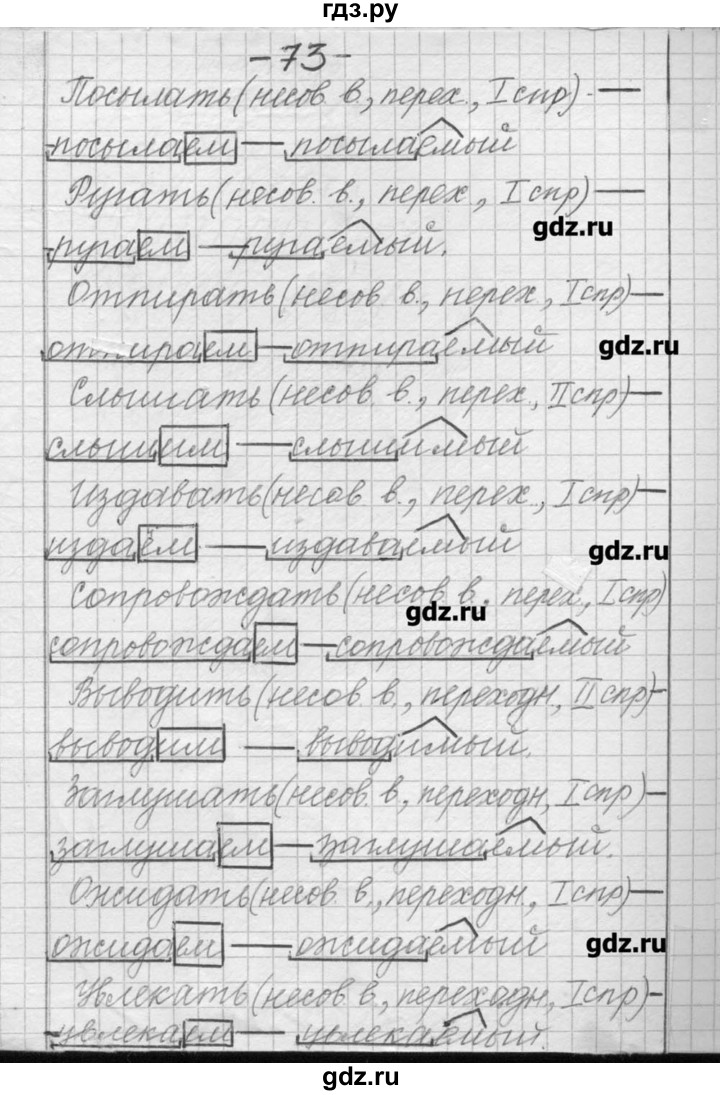 гдз.ру
- 73 -
Посылать (несов. в., перех., I спр) -
посылаем — посылаемый
Ругать (несов. в., перех., I спр) —
gdz.ru
ругаем — ругаемый.
Отпирать (несов. в., перех., I спр) —
отпираем — отпираемый
gdz.ru
Слышать (несов. в., перех., II спр) —
слышим — слышимый
Издавать (несов. в., перех., I спр) —
издаём — издаваемый
gdz.ru
Сопровождать (несов. в., перех., I спр)
gdz.ru
сопровождаем — сопровождаемый
Выводить (несов. в., переходн, II спр) -
выводим — выводимый.
Заглушать (несов. в., переходн, I спр) —
заглушаем — заглушаемый.
Ожидать (несов. в., переходн., I спр) —
ожидаем — ожидаемый
gdz.ru
Увлекать (несов. в, переходн, I спр) -
увлекаем — увлекаемый.
gdz.ru